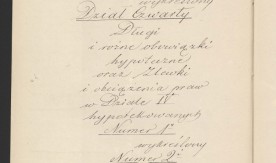 wykreślony
Dział Czwarty
Długi
i rożne obowiązki
hypoteczne
oraz Zlewki
i obciążenia praw
w Dziale IV
hypotekowanych
Numer 1º
wykreślony
Numer 2º